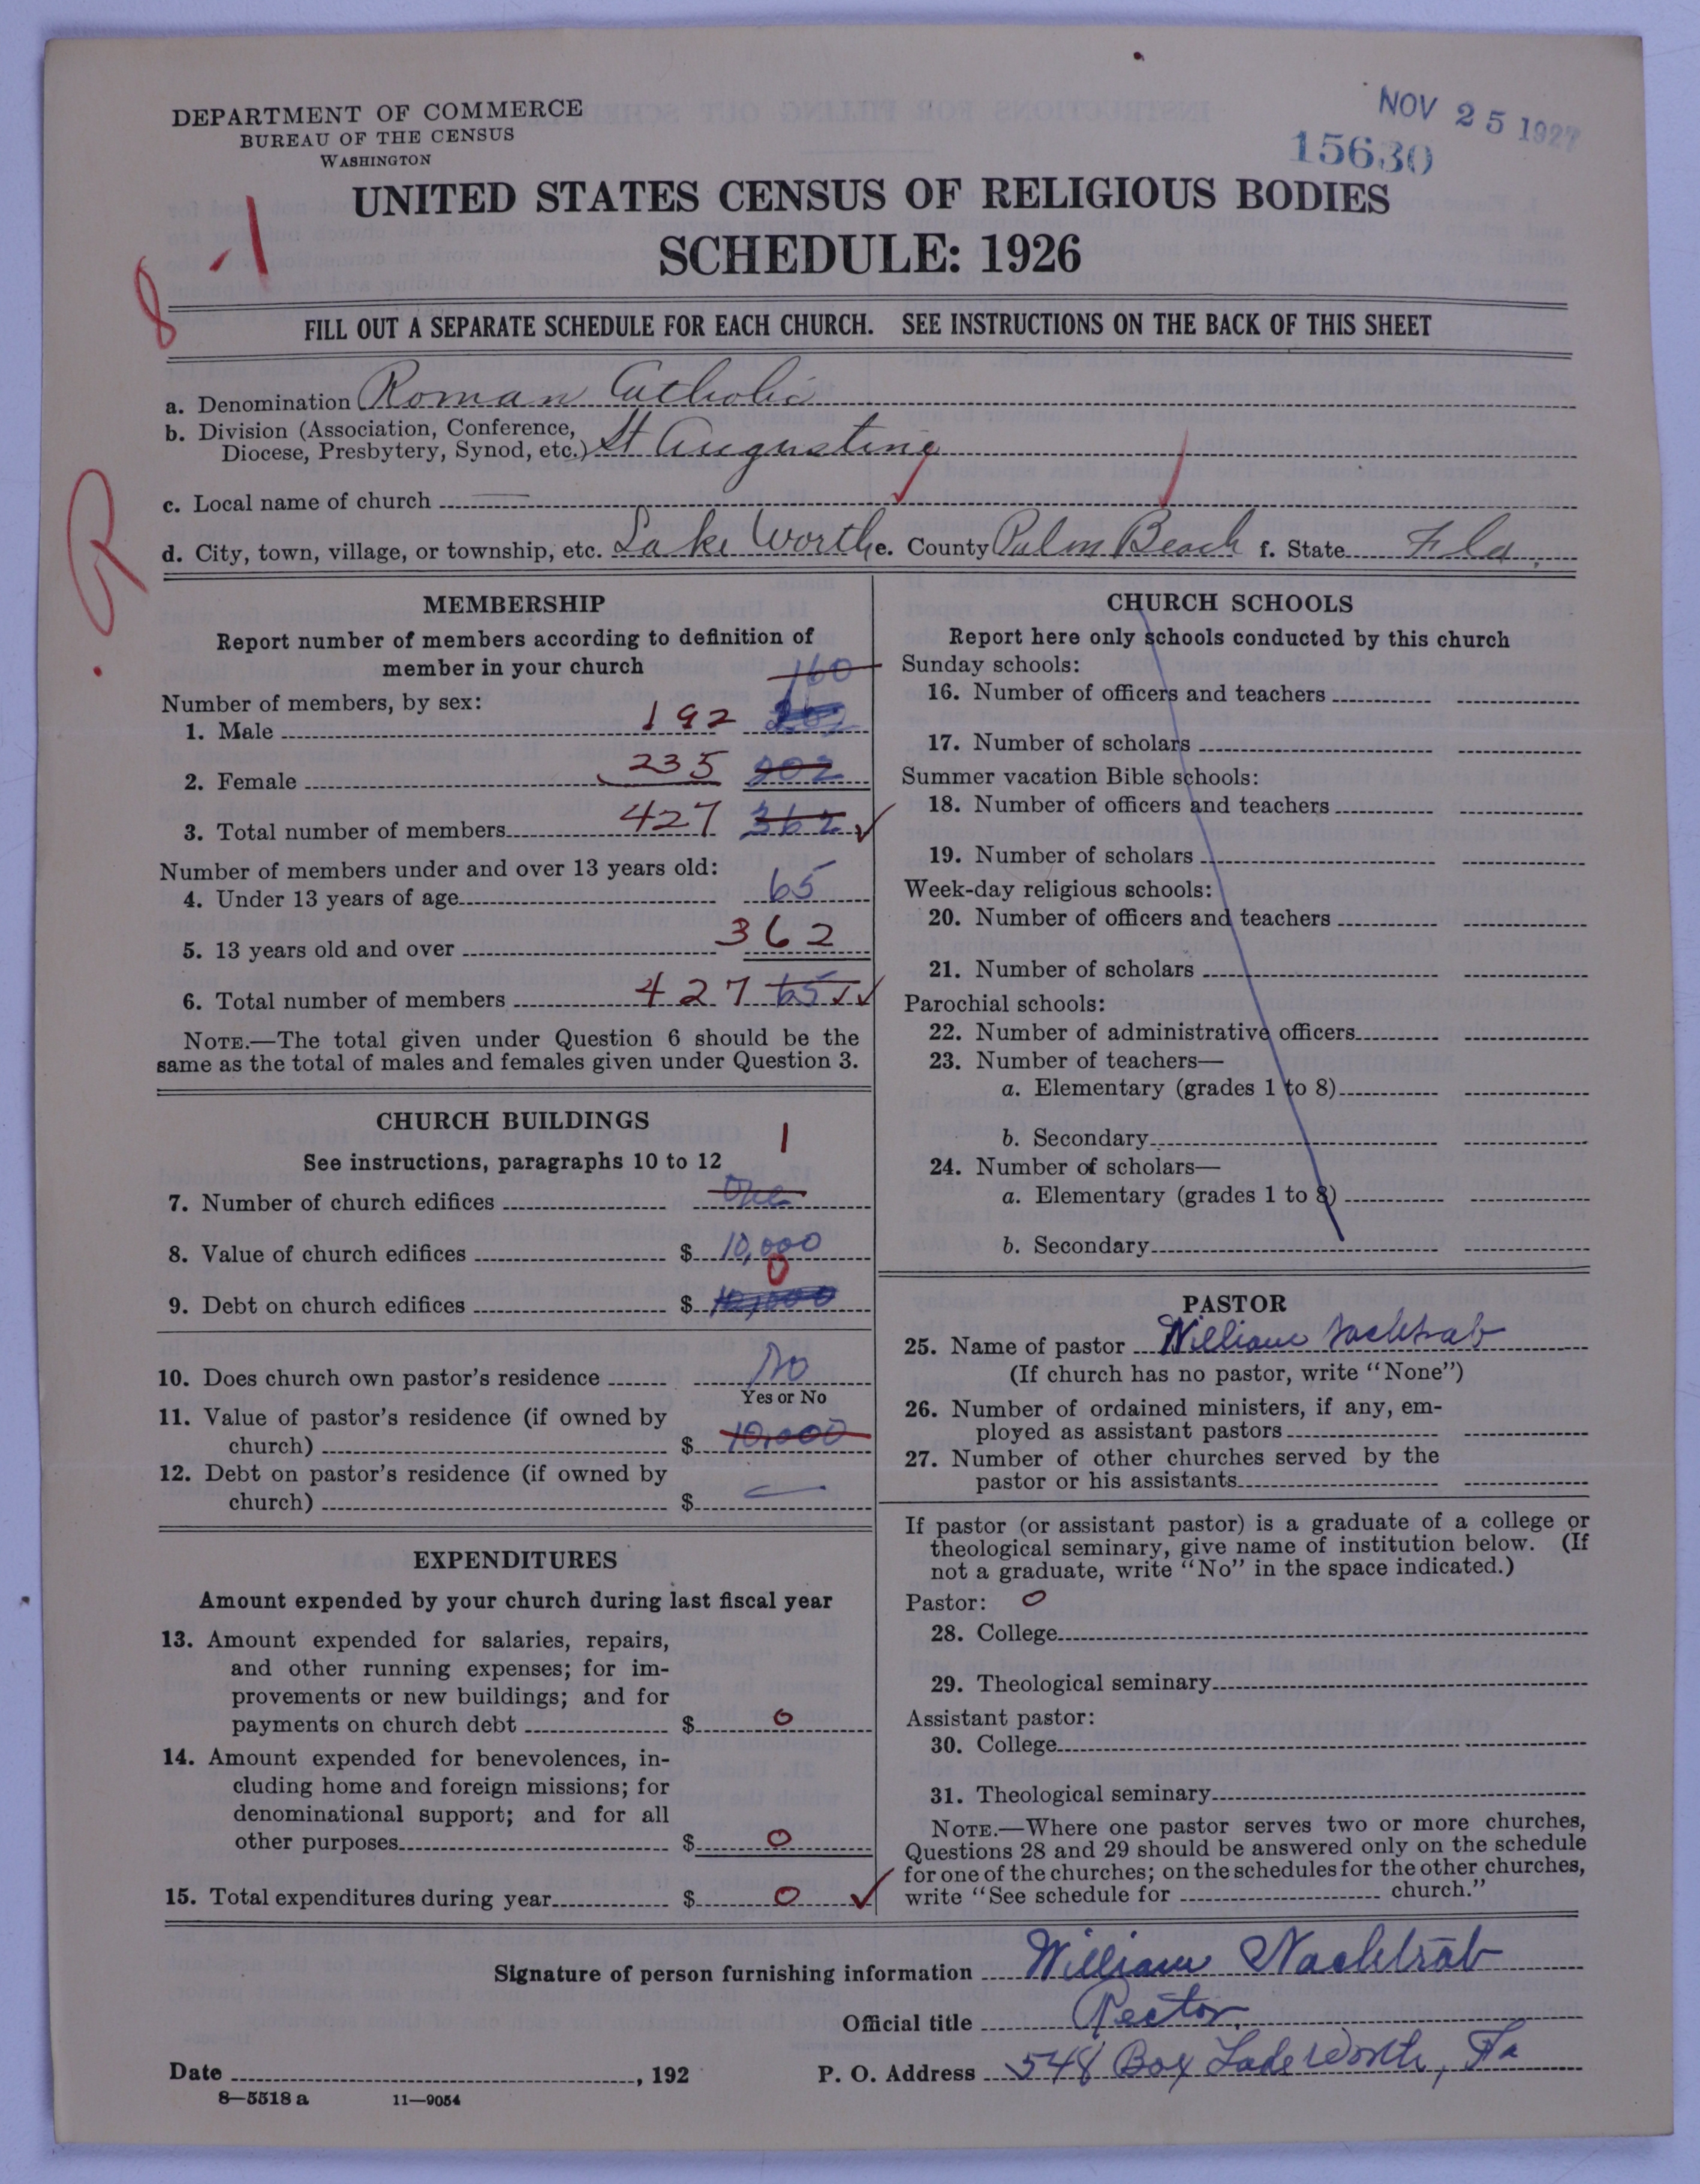 DEPARTMENT OF COMMERCE
BUREAU OF THE CENSUS
WASHINGTON
NOV 25 1927
15630
UNITED STATES CENSUS OF RELIGIOUS BODIES
SCHEDULE: 1926
8-1
FILL OUT A SEPARATE SCHEDULE FOR EACH CHURCH. SEE INSTRUCTIONS ON THE BACK OF THIS SHEET
a. Denomination Roman Catholic
b. Division (Association, Conference,
Diocese, Presbytery, Synod, etc.) St Augustine
c. Local name of church
d. City, town, village, or township, etc. Lake Worth e. County Palm Beach f. State Fla.
MEMBERSHIP
Report number of members according to definition of
member in your church
160
Number of members, by sex:
1. Male 192
2. Female 235 202
3. Total number of members 427 362
Number of members under and over 13 years old:
4. Under 13 years of age 65
5. 13 years old and over 362
6. Total number of members 427 65
NOTE.—The total given under Question 6 should be the
same as the total of males and females given under Question 3.
CHURCH BUILDINGS
See instructions, paragraphs 10 to 12
1
7. Number of church edifices One
8. Value of church edifices $ 10,000
0
9. Debt on church edifices $ 10,000
10. Does church own pastor's residence No
Yes or No
11. Value of pastor's residence (if owned by
church) $ 10,000
12. Debt on pastor's residence (if owned by
church) $ —
EXPENDITURES
Amount expended by your church during last fiscal year
13. Amount expended for salaries, repairs,
and other running expenses; for im-
provements or new buildings; and for
payments on church debt $ 0
14. Amount expended for benevolences, in-
cluding home and foreign missions; for
denominational support; and for all
other purposes $ 0
15. Total expenditures during year $ 0
CHURCH SCHOOLS
Report here only schools conducted by this church
Sunday schools:
16. Number of officers and teachers
17. Number of scholars
Summer vacation Bible schools:
18. Number of officers and teachers
19. Number of scholars
Week-day religious schools:
20. Number of officers and teachers
21. Number of scholars
Parochial schools:
22. Number of administrative officers
23. Number of teachers—
a. Elementary (grades 1 to 8)
b. Secondary
24. Number of scholars—
a. Elementary (grades 1 to 8)
b. Secondary
PASTOR
25. Name of pastor William Nachtrab
(If church has no pastor, write "None")
26. Number of ordained ministers, if any, em-
ployed as assistant pastors
27. Number of other churches served by the
pastor or his assistants
If pastor (or assistant pastor) is a graduate of a college or
theological seminary, give name of institution below. (If
not a graduate, write "No" in the space indicated.)
Pastor: 0
28. College
29. Theological seminary
Assistant pastor:
30. College
31. Theological seminary
NOTE.—Where one pastor serves two or more churches,
Questions 28 and 29 should be answered only on the schedule
for one of the churches; on the schedules for the other churches,
write "See schedule for church."
Signature of person furnishing information William Nachtrab
Official title Rector.
Date , 192 P. O. Address 548 Box Lake Worth, Fa
8—5518 a 11—9054